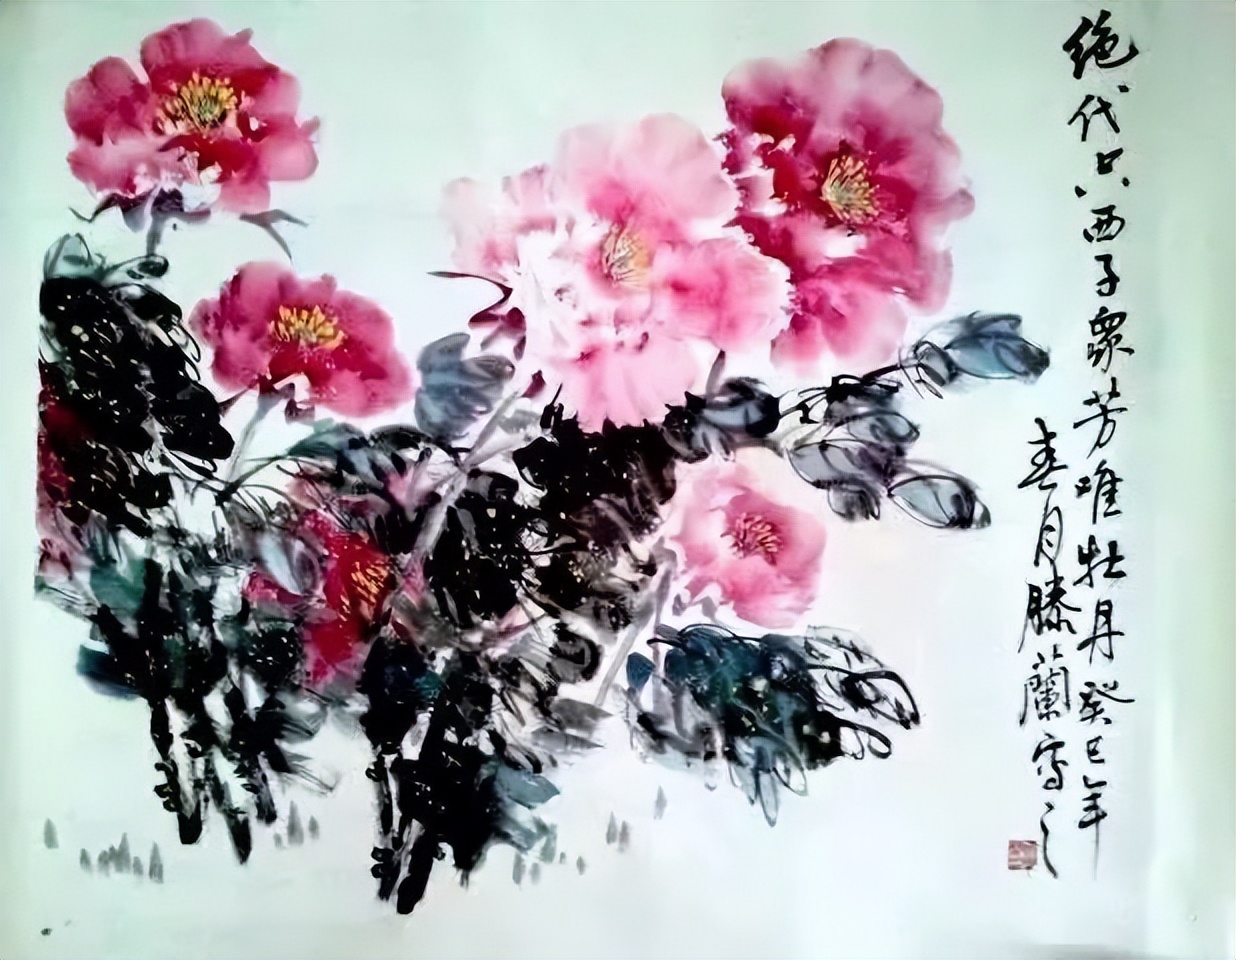 绝代只西子眾芳唯牡丹癸巳年
春月滕蘭写之